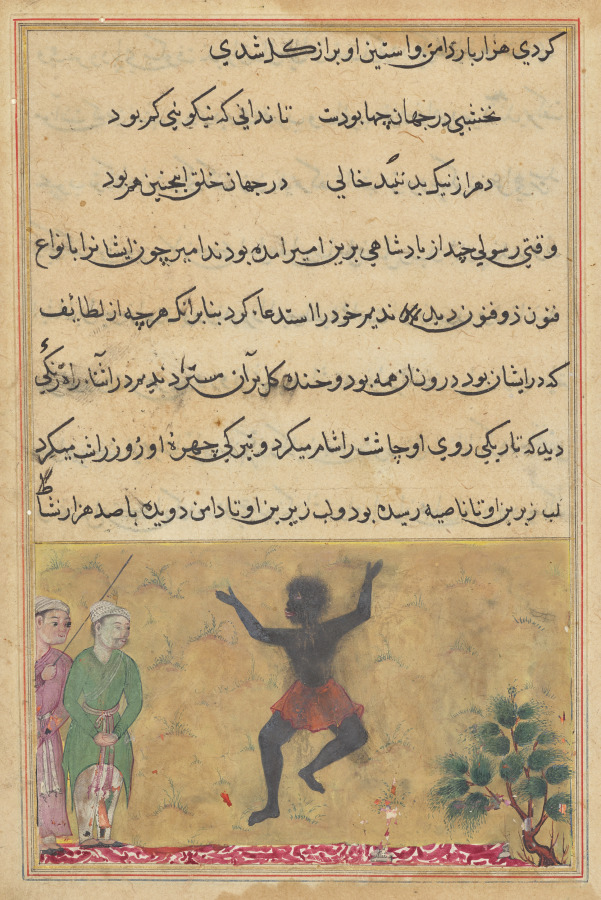 کردي هزار بار دامن و استین او پر از کل شدي
نخشبي در جهان چها بودست تا نداني که نیکوئي کم بود
دهر از نیک بد نشد خالي در جهان خلق اینچنین هم بود
وقتي رسولي چند از بادشاهي برین امیر امده بودند امیر چون ایشانرا بانواع
فنون ذو فنون دید ندیم خود را استدعا کرد بنابرانکه هرچه از لطائف
که در ایشان بود در و نان همه بود و خنده کل بر آن مستزاد ندیم در اثناء راه زنکئ
دید که تاریکي روي او چاشت را شام میکرد و تیرکي چهرهٔ او روز را شب میکرد
لب زبرین او تا ناصیه رسیده بود و لب زیرین او تا دامن دویده با صد هزار نشاط